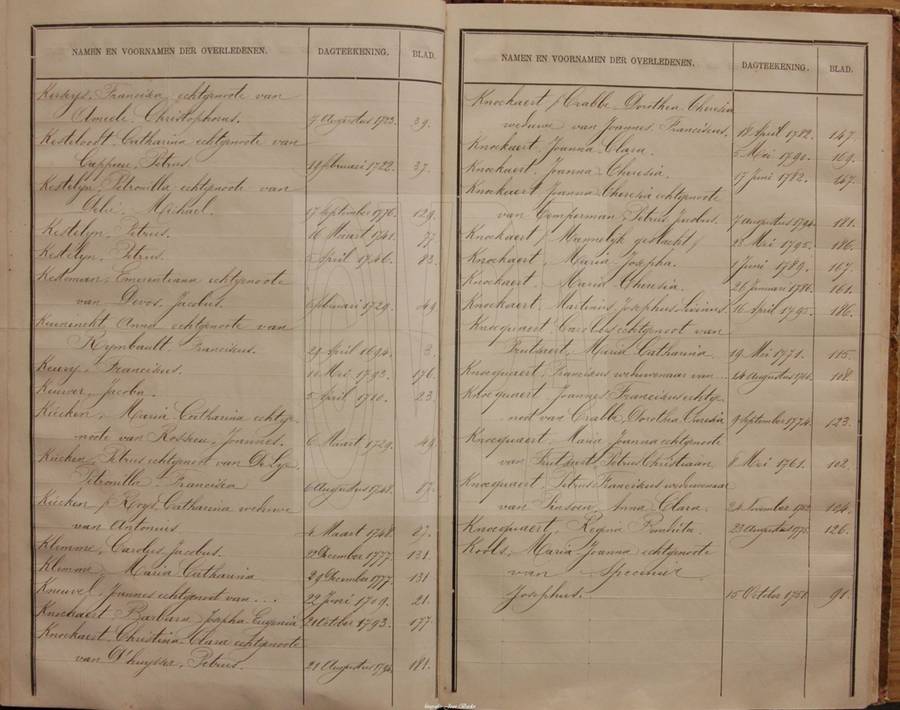 NAMEN EN VOORNAMEN DER OVERLEDENEN. DAGTEEKENING. BLAD.
Kerkys, Franciska echtgenoote van
Amede Christophorus. 7 Augustus 1723. 39.
Kesteloodt Catharina echtgenoote van
Cappue, Petrus. februari 1722. 37.
Kestelyn, Petronilla echtgenoote van
Michael. 17 September 1776. 129.
Kestelyn, Petrus. 16 Maart 1741. 77
Kestelyn, Petrus. April 1746. 83.
Kesteman, Emerentiana echtgenoote
van Devos, Jacobus. februari 1729. 49
Anna echtgenoote van
Rymbault Franciskus. 29 April 1694. 3.
Keury, Franciskus. 11 Mei 1793. 176.
Keuver, Jacoba. 5 April 1710. 23.
Kiecken, Maria Catharina echtge-
noote van Rosseeu, Joannes. 6 Maart 1729. 49.
Kiecken Petrus echtgenoot van De Lye
Petronilla Francisca 6 Augustus 1748. 87.
Kiecken, / Roys Catharina weduwe
van Antonius 4 Maart 1748. 87.
Klemme, Carolus Jacobus. December 1777. 131.
Klemme, Maria Catharina 29 December 1777. 131
Kneuvel, Joannes echtgenoot van ... 22 Juni 1709. 21.
Knockaert Barbara Josepha Eugenia October 1793. 177.
Knockaert, Christina Clara echtgenoote
van D'huysser, Petrus. 21 Augustus 181.
NAMEN EN VOORNAMEN DER OVERLEDENEN. DAGTEEKENING. BLAD.
Knockaert / Crabbe Dorothea Theresia
weduwe van Joannes Franciscus. 18 April 1782. 147.
Knockaert, Joanna Clara. 5 Mei 1790. 169.
Knockaert, Joanna Theresia. 17 Juni 1782. 147.
Knockaert Joanna Theresia echtgenoote
van Temperman, Petrus Jacobus. 7 augustus 1794. 181.
Knockaert / Mannelijk geslacht / 28 Mei 1795. 186.
Knockaert, Maria Josepha. 1 Juni 1789. 167.
Knockaert, Maria Theresia. 26 Januari 1786. 161.
Knockaert, Martinus Josephus Livinus 16 April 1795. 186.
Knocquaert Carolus echtgenoot van
Maria Catharina. 19 Mei 1771. 115.
Knocquaert, Franciscus weduwenaar van ... 24 Augustus 108.
Knocquaert, Joannes Franciscus echtge-
noot van Crabbe, Dorothea Theresia 9 September 1774. 123.
Knocquaert, Maria Joanna echtgenoote
van Petrus Christiaan. 8 Mei 1761. 102.
Knocquaert, Petrus Franciskus weduwenaar
van Anna Clara. 24 November
Knocquaert, Regina 23 Augustus 126.
Kools, Maria Joanna echtgenoote
van
Josephus. 15 October 1751. 91.